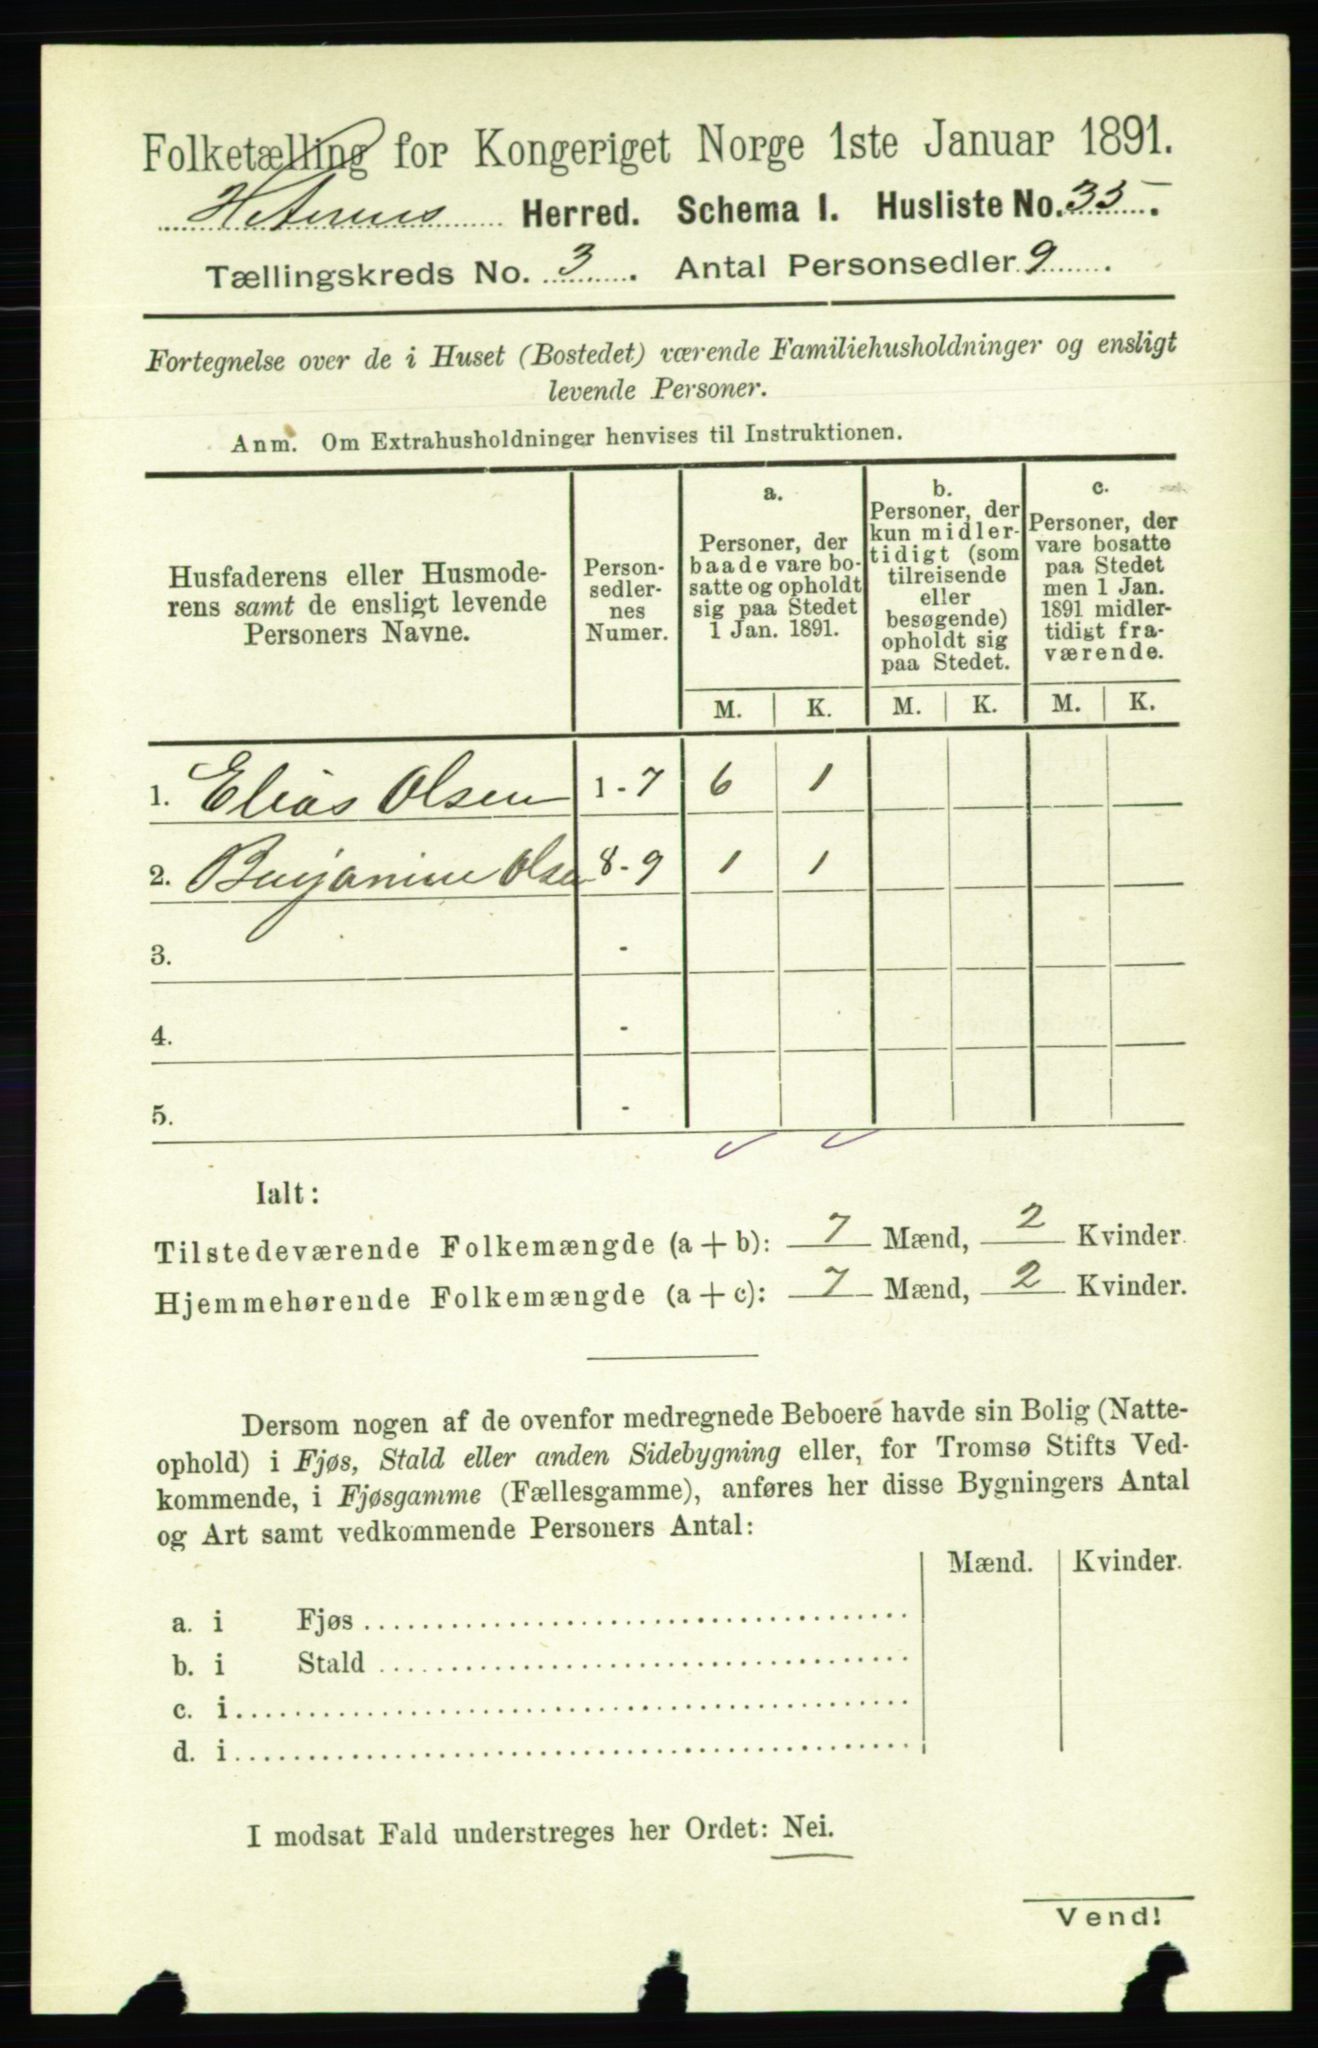 Folketælling for Kongeriget Norge 1ste Januar 1891.
Herred. Schema I. Husliste No. 33.
Tællingskreds No. 3. Antal Personsedler 9.
Fortegnelse over de i Huset (Bostedet) værende Familiehusholdninger og ensligt
levende Personer.
Anm. Om Extrahusholdninger henvises til Instruktionen.
Husfaderens eller Husmode-
rens samt de ensligt levende
Personers Navne.
Person-
sedler-
nes
Numer.
a.
Personer, der
baade vare bo-
satte og opholdt
sig paa Stedet
1 Jan. 1891.
b.
Personer, der
kun midler-
tidigt (som
tilreisende
eller
besøgende)
opholdt sig
paa Stedet.
c.
Personer, der
vare bosatte
paa Stedet
men 1 Jan.
1891 midler-
tidigt fra-
værende.
M. K. M. K. M. K.
1. Elias Olsen 1-7 6 1
2. Benjamine Olsen 8-9 1 1
3. -
4. -
5. -
Ialt:
Tilstedeværende Folkemængde (a + b): 7 Mænd, 2 Kvinder.
Hjemmehørende Folkemængde (a + c): 7 Mænd, 2 Kvinder.
Dersom nogen af de ovenfor medregnede Beboere havde sin Bolig (Natte-
ophold) i Fjøs, Stald eller anden Sidebygning eller, for Tromsø Stifts Ved-
kommende, i Fjøsgamme (Fællesgamme), anføres her disse Bygningers Antal
og Art samt vedkommende Personers Antal:
Mænd. Kvinder.
a. i Fjøs
b. i Stald
c. i
d. i
I modsat Fald understreges her Ordet: Nei.
Vend!